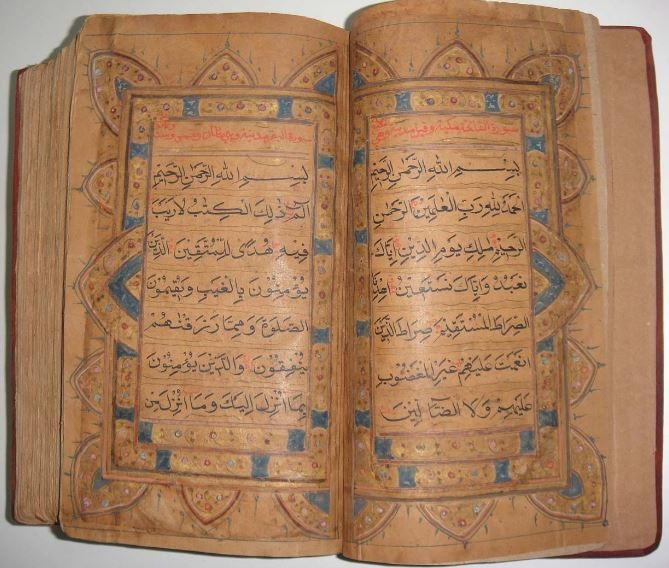 سورة الفاتحة مكية وقيل مدنية وهى
بسم الله الرحمن الرحيم
الحمد لله رب العلمين الرحمن
الرحيم ملك يوم الدين اياك
نعبد واياك نستعين اهدنا
الصراط المستقيم صراط الذين
انعمت عليهم غير المغضوب
عليهم ولا الضآلين
سورة البقرة مدنية وهى
بسم الله الرحمن الرحيم
الم ذلك الكتب لا ريب
فيه هدى للمتقين الذين
يؤمنون بالغيب ويقيمون
الصلوة ومما رزقنهم
ينفقون والذين يؤمنون
بما انزل اليك وما انزل من